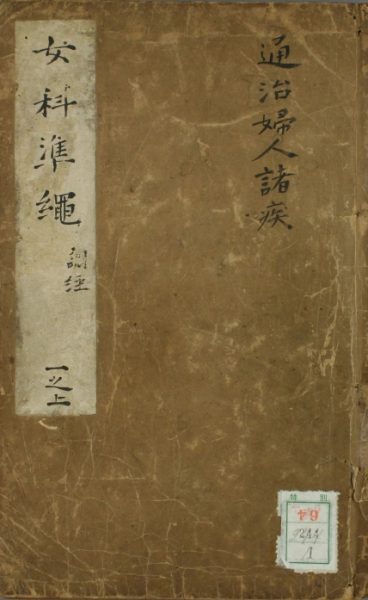 通治婦人諸疾
女科準繩
調経
一之上
特別
64
1